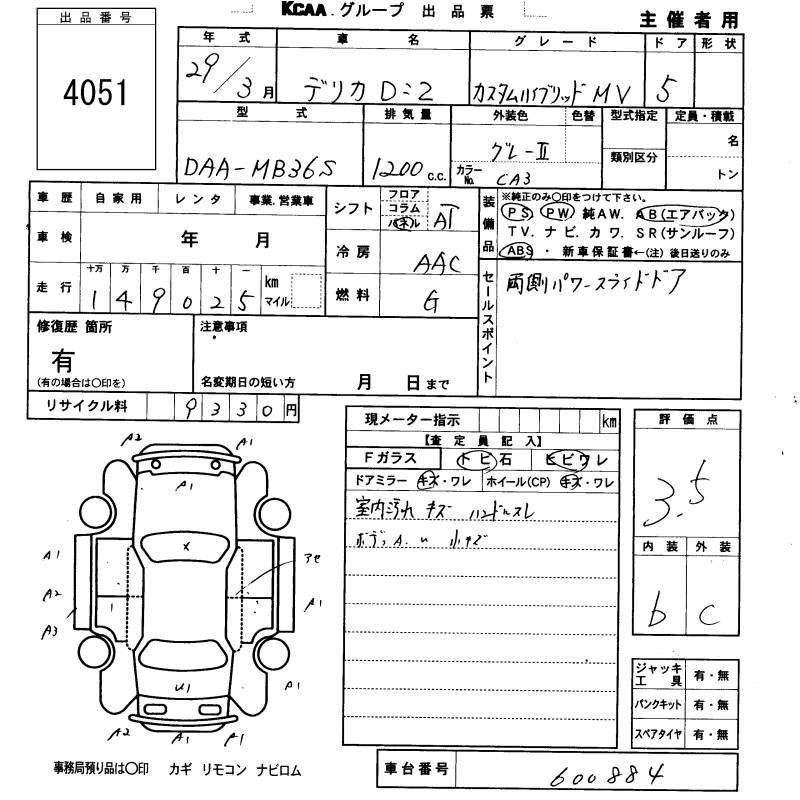 KCAA.グループ 出品票
主催者用
出品番号
4051
年式 車名 グレード ドア 形状
29/3月 デリカ D:2 カスタムハイブリッド MV 5
型式 排気量 外装色 色替 型式指定 定員・積載
DAA-MB36S 1200 c.c. グレーⅡ 名
カラーNo. CA3 類別区分 トン
車歴 自家用 レンタ 事業.営業車
シフト フロア コラム パネル AT
装備品 ※純正のみ〇印をつけて下さい。
PS PW 純AW. AB(エアバック)
TV. ナビ. カワ. SR(サンルーフ)
ABS・新車保証書←(注) 後日送りのみ
車検 年 月
冷房 AAC
走行 十万 万 千 百 十 一 km マイル
1 4 9 0 2 5
燃料 G
セールスポイント 両側パワースライドドア
修復歴 箇所
有
(有の場合は〇印を)
注意事項
名変期日の短い方 月 日まで
リサイクル料 9330円
現メーター指示 km
【査定員記入】
Fガラス トビ石 ヒビワレ
ドアミラー キズ・ワレ ホイール(CP) キズ・ワレ
室内汚れ キズ ハンドルスレ
ボディA.u 小キズ
評価点
3.5
内装 外装
b c
A2 A1
A1
X
A1 アセ
A2 1 A1
A3
U1 A1
A2 A1 A1
ジャッキ工具 有・無
パンクキット 有・無
スペアタイヤ 有・無
事務局預り品は〇印 カギ リモコン ナビロム
車台番号 600884